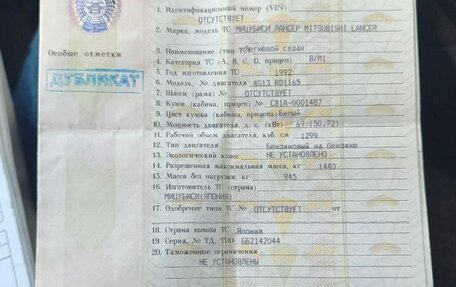 1. Идентификационный номер (VIN)
ОТСУТСТВУЕТ
2. Марка, модель ТС МИЦУБИСИ ЛАНСЕР MITSUBISHI LANCER
3. Наименование (тип ТС) Легковой седан
Особые отметки
4. Категория ТС (А, В, С, D, прицеп) B/M1
5. Год изготовления ТС 1992
ДУБЛИКАТ
6. Модель, № двигателя 4G13 RD1165
7. Шасси (рама) № ОТСУТСТВУЕТ
8. Кузов (кабина, прицеп) № CB1A-0001487
9. Цвет кузова (кабины, прицепа) Белый
10. Мощность двигателя, л. с. (кВт) 69 (50,72)
11. Рабочий объем двигателя, куб. см 1299
12. Тип двигателя Бензиновый на бензине
13. Экологический класс НЕ УСТАНОВЛЕНО
14. Разрешенная максимальная масса, кг 1440
15. Масса без нагрузки, кг 945
16. Изготовитель ТС (страна)
МИЦУБИСИ(ЯПОНИЯ)
17. Одобрение типа ТС № ОТСУТСТВУЕТ от
18. Страна вывоза ТС Япония
19. Серия, № ТД, ТПО ББ2142044
20. Таможенные ограничения
НЕ УСТАНОВЛЕНЫ